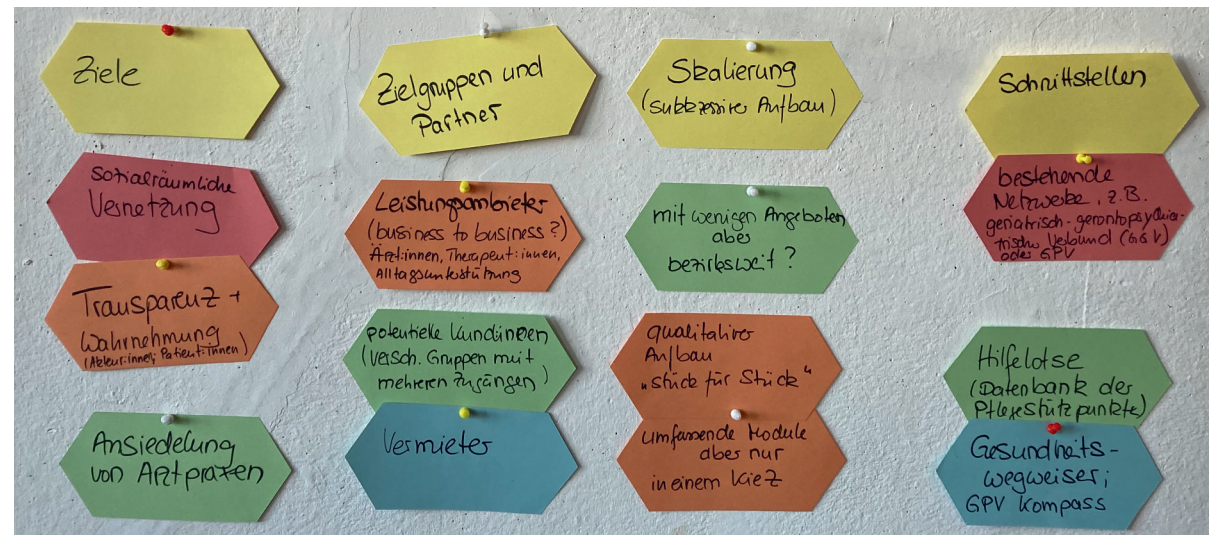 Ziele
sozialräumliche
Vernetzung
Transparenz +
Wahrnehmung
(Akteur:innen, Patient:innen)
Ansiedelung
von Arztpraxen
Zielgruppen und
Partner
Leistungsanbieter
(business to business?)
Ärzt:innen, Therapeut:innen,
Alltagsunterstützung
potentielle Kund:innen
(versch. Gruppen mit
mehreren Zugängen)
Vermieter
Skalierung
(sukzessiver Aufbau)
mit wenigen Angeboten
aber
bezirksweit?
qualitativer
Aufbau
"stück für Stück"
umfassende Module
aber nur
in einem Kiez
Schnittstellen
bestehende
Netzwerke, z.B.
geriatrisch-gerontopsychia-
trischer Verbund (GGV)
oder GPV
Hilfelotse
(Datenbank der
Pflegestützpunkte)
Gesundheits-
wegweiser;
GPV Kompass